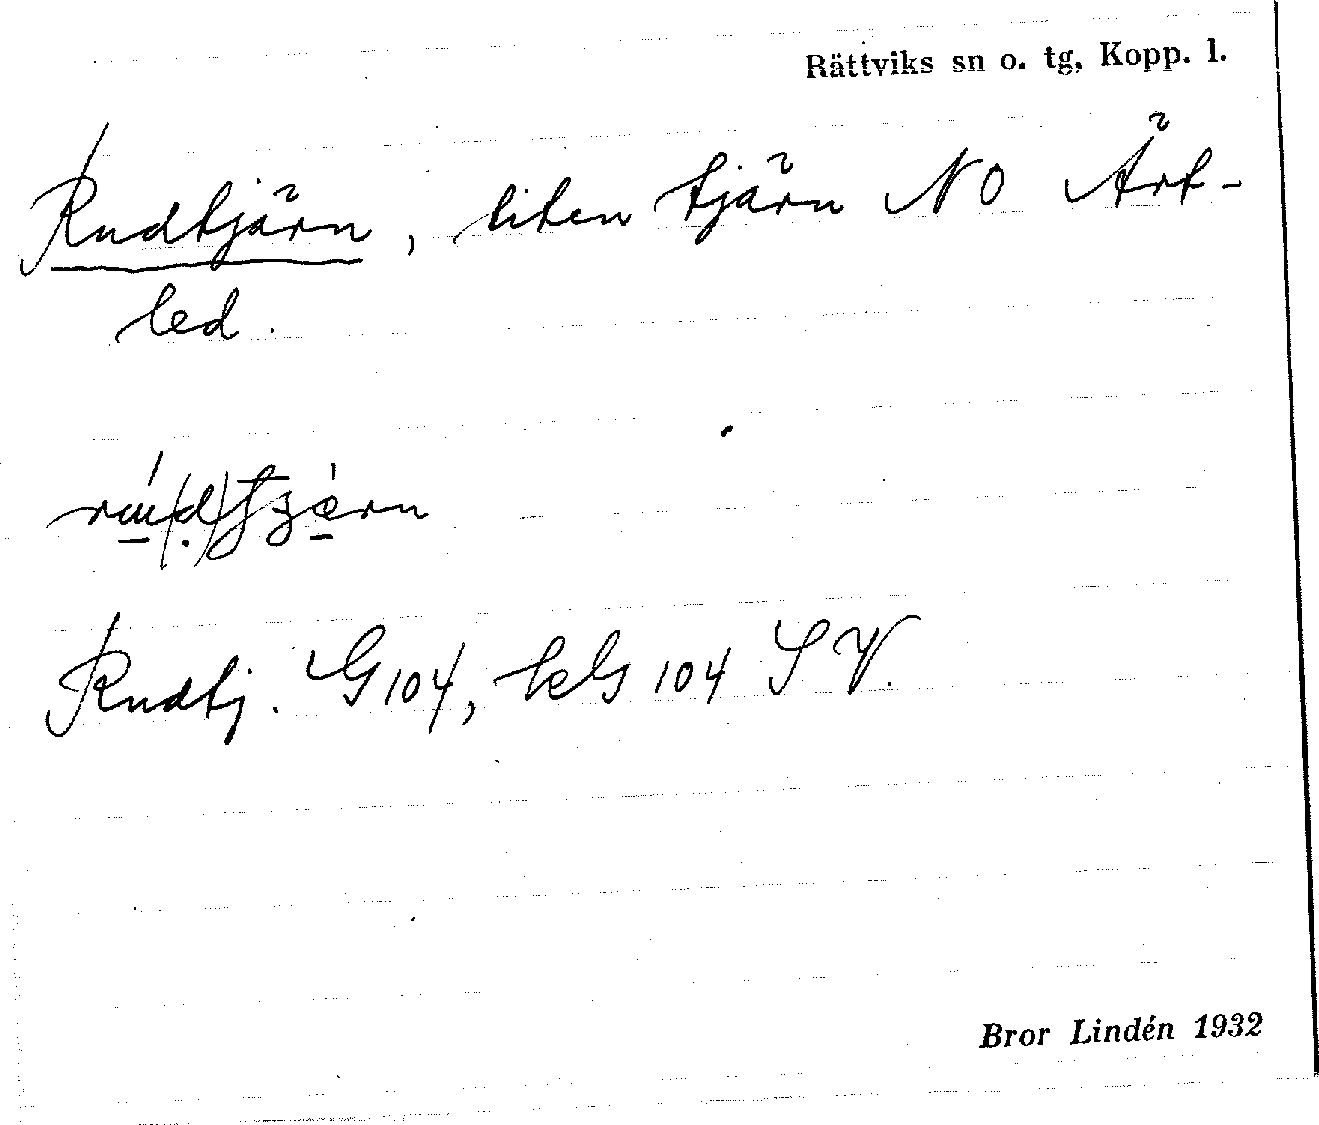 Rättviks sn o. tg, Kopp. l.
Rudtjärn, liten tjärn NO Ärt-
led.
Rudtj. G 104, kbl G 104 SV.
Bror Lindén 1932